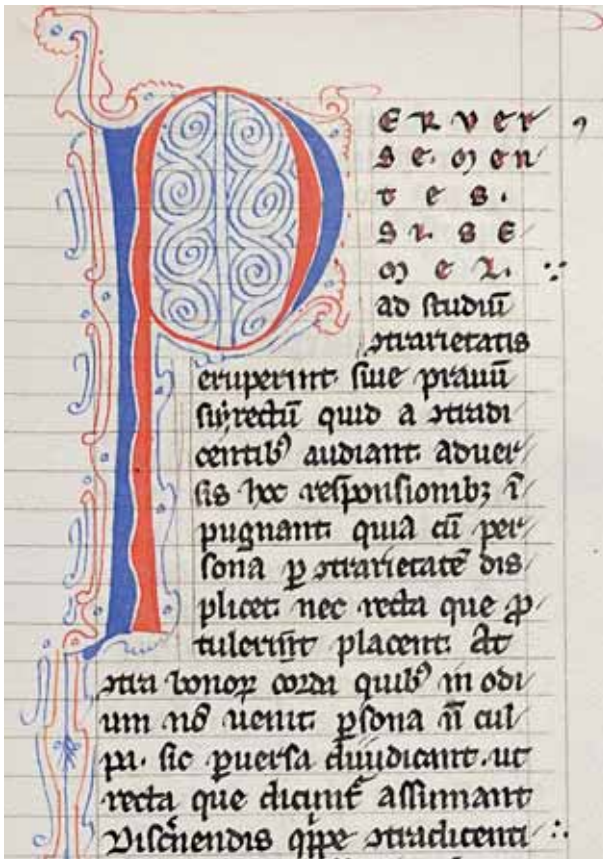 P
ERVER
SE MEN
TES.
SI SE
MEL.
ad studiū
ↄtrarietatis
eruperint. siue prauū
siue rectū quid a ↄtradi
centibꝰ audiant. aduer
sis hoc responsionibꝫ ī
pugnant. quia cū per
sona ꝑ ↄtrarietatē dis
plicet. nec recta que ꝓ
tulerint placent. At
ↄtra bonoꝝ corda quibꝰ in odi
um nō uenit ꝑsona n̄ cul
pa. sic ꝑuersa diiudicant. ut
recta que dicunt assumant
Discernendis qͥppe ↄtradicenti